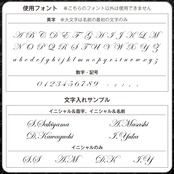 使用フォント ※こちらのフォント以外は使用できません
英字 ※大文字は名前の最初の文字のみ
A B C D E F G H I J K L M
N O P Q R S T U V W X Y Z
a b c d e f g h i j k l m n o p q r s t u v w x y z
数字・記号
0 1 2 3 4 5 6 7 8 9
文字入れサンプル
イニシャル&苗字、イニシャル&名前
S.Sakiyama A.Masashi
D.Kawaguchi I.Yuka
イニシャルのみ
S.S A.M D.K I.Y